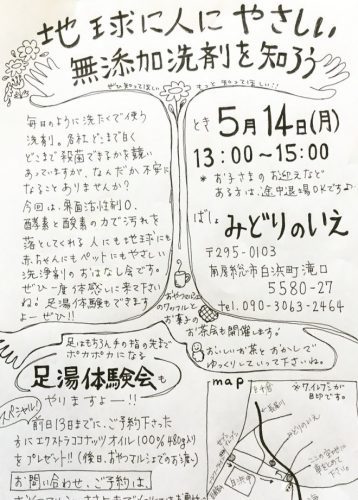 地球に人にやさしい
無添加洗剤を知ろう
ぜひ知ってほしい
もっと知ってほしい!!
毎日のように洗たくで使う
洗剤。各社どこまで白く
どこまで殺菌できるかを競い
あっていますが、なんだか不安に
なることありませんか?
今回は、界面活性剤0、
酵素と酸素の力で汚れを
落としてくれる 人にも地球にも
赤ちゃんにもペットにもやさしい
洗浄剤のおはなし会です。
ぜひ一度体感しに来て下さい
ね。足湯体験もできます
よーぜひ!!
とき 5月14日(月)
13:00〜15:00
*お子さまのお迎えなど
ある方は、途中退場OKですよ
ばしょ みどりのいえ
〒295-0103
南房総市白浜町滝口
5580-27
tel.090-3063-2464
おやつマルシェ
のワッフルと
お菓子の
お茶会も開催します!
おいしいお茶とおかしで
ゆっくりしていって下さいね。
足はもちろん手の指の先まで
ポカポカになる
足湯体験会も
やりますよー!!
スペシャル!
前日13日までに、ご予約下さった
方にエクストラココナッツオイル(100% 480g入り)
をプレゼント!!(後日、おやつマルシェでのお渡し)
お問い合わせ、ご予約は、
map
*ワイルクミが
目印です。
みどりのいえ